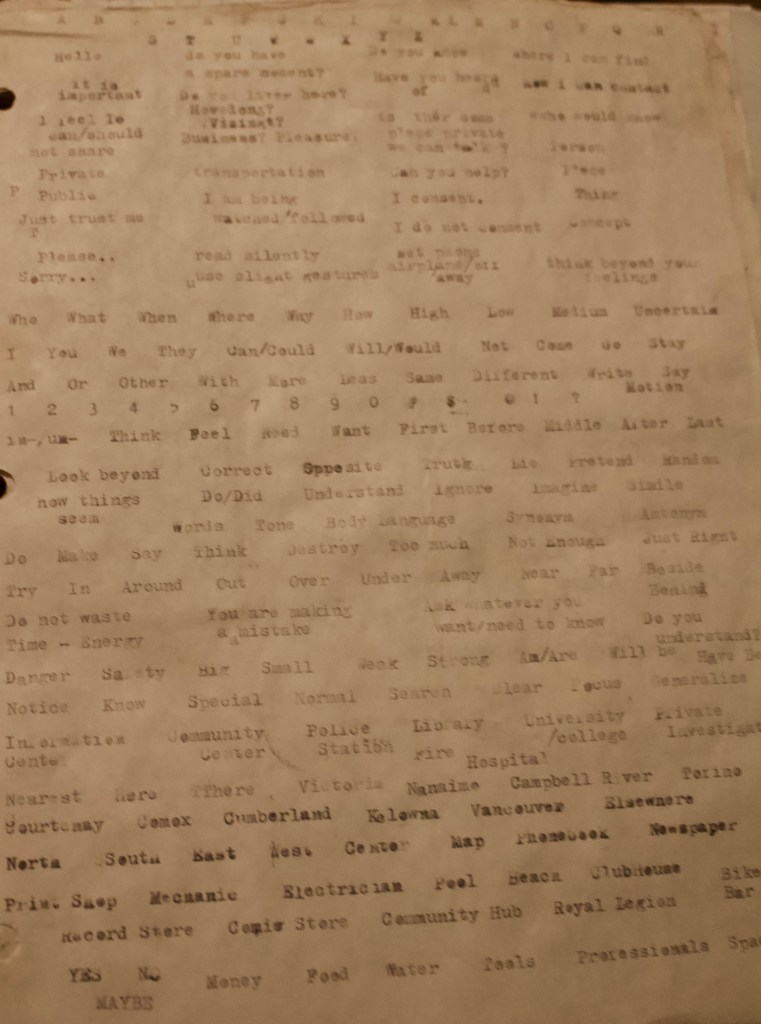 A B C D E F G H I J K L M N O P Q R
S T U V W X Y Z
Hello do you have Do you know where I can find
a spare moment? Have you heard
It is important Do you live here? of how I can contact
I feel Visiting? is there some who would know
can/should Business? Pleasure? place private
not share we can talk? Person
Private transportation Can you help? Place
P Public I am being I consent. Thing
Just trust me watched/followed I do not consent Concept
T
Please.. read silently not
Sorry... use slight gestures airplane/ think beyond your
away feelings
Who What When Where Way How High Low Medium Uncertain
I You We They Can/Could Will/Would Not Come Go Stay
And Or Other With More Less Same Different Write Say
Motion
1 2 3 4 5 6 7 8 9 0 # $ ! ?
in-/un- Think Feel Need Want First Before Middle After Last
Look beyond Correct Opposite Truth Lie Pretend Random
how things Do/Did Understand Ignore Imagine Simile
seem Words Tone Body Language Synonym Antonym
Do Make Say Think Destroy Too much Not Enough Just Right
Try In Around Out Over Under Away Near Far Beside
Behind
Do not waste You are making Ask whatever you
Time - Energy a mistake want/need to know Do you
understand?
Danger Safety Big Small Weak Strong Am/Are Will be Have Be
Notice Know Special Normal Search Clear Focus Generalize
Information Community Police Library University Private
Center Center Station Fire Hospital /college Investigat
Nearest Here There Victoria Nanaimo Campbell River Tofino
Courtenay Comox Cumberland Kelowna Vancouver Elsewhere
North South East West Center Map Phonebook Newspaper
Print Shop Mechanic Electrician Pool Beach Clubhouse Bike
Record Store Comic Store Community Hub Royal Legion Bar
YES NO Money Food Water Tools Professionals Spa
MAYBE